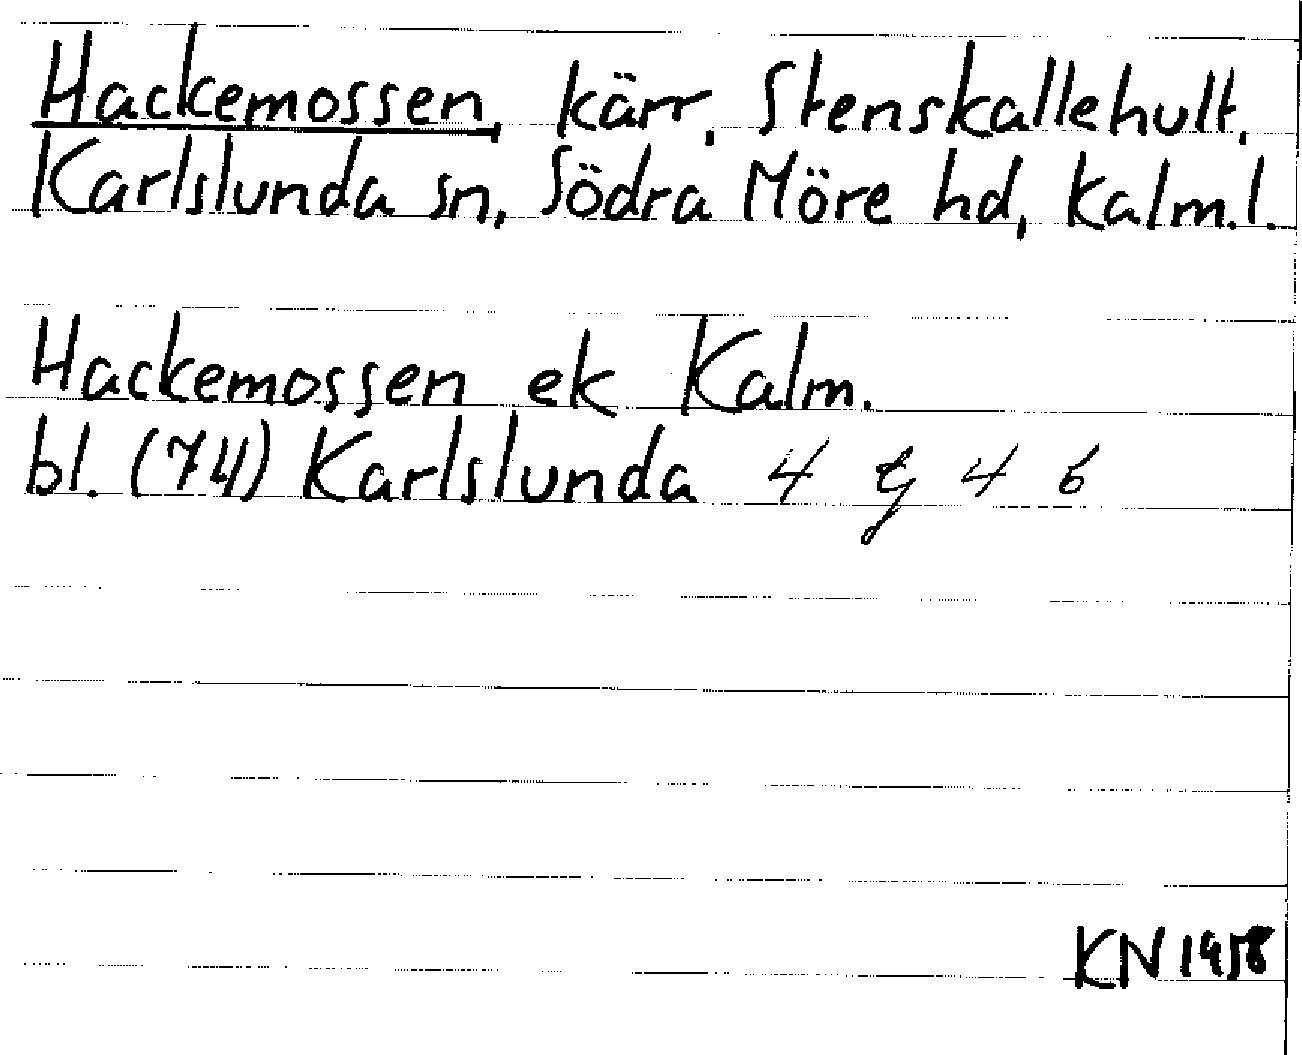 Hackemossen, kärr, Stenskallehult,
Karlslunda sn, Södra Möre hd, Kalm.l.
Hackemossen ek Kalm.
bl. (74) Karlslunda 4 g 4 b
KN 1958